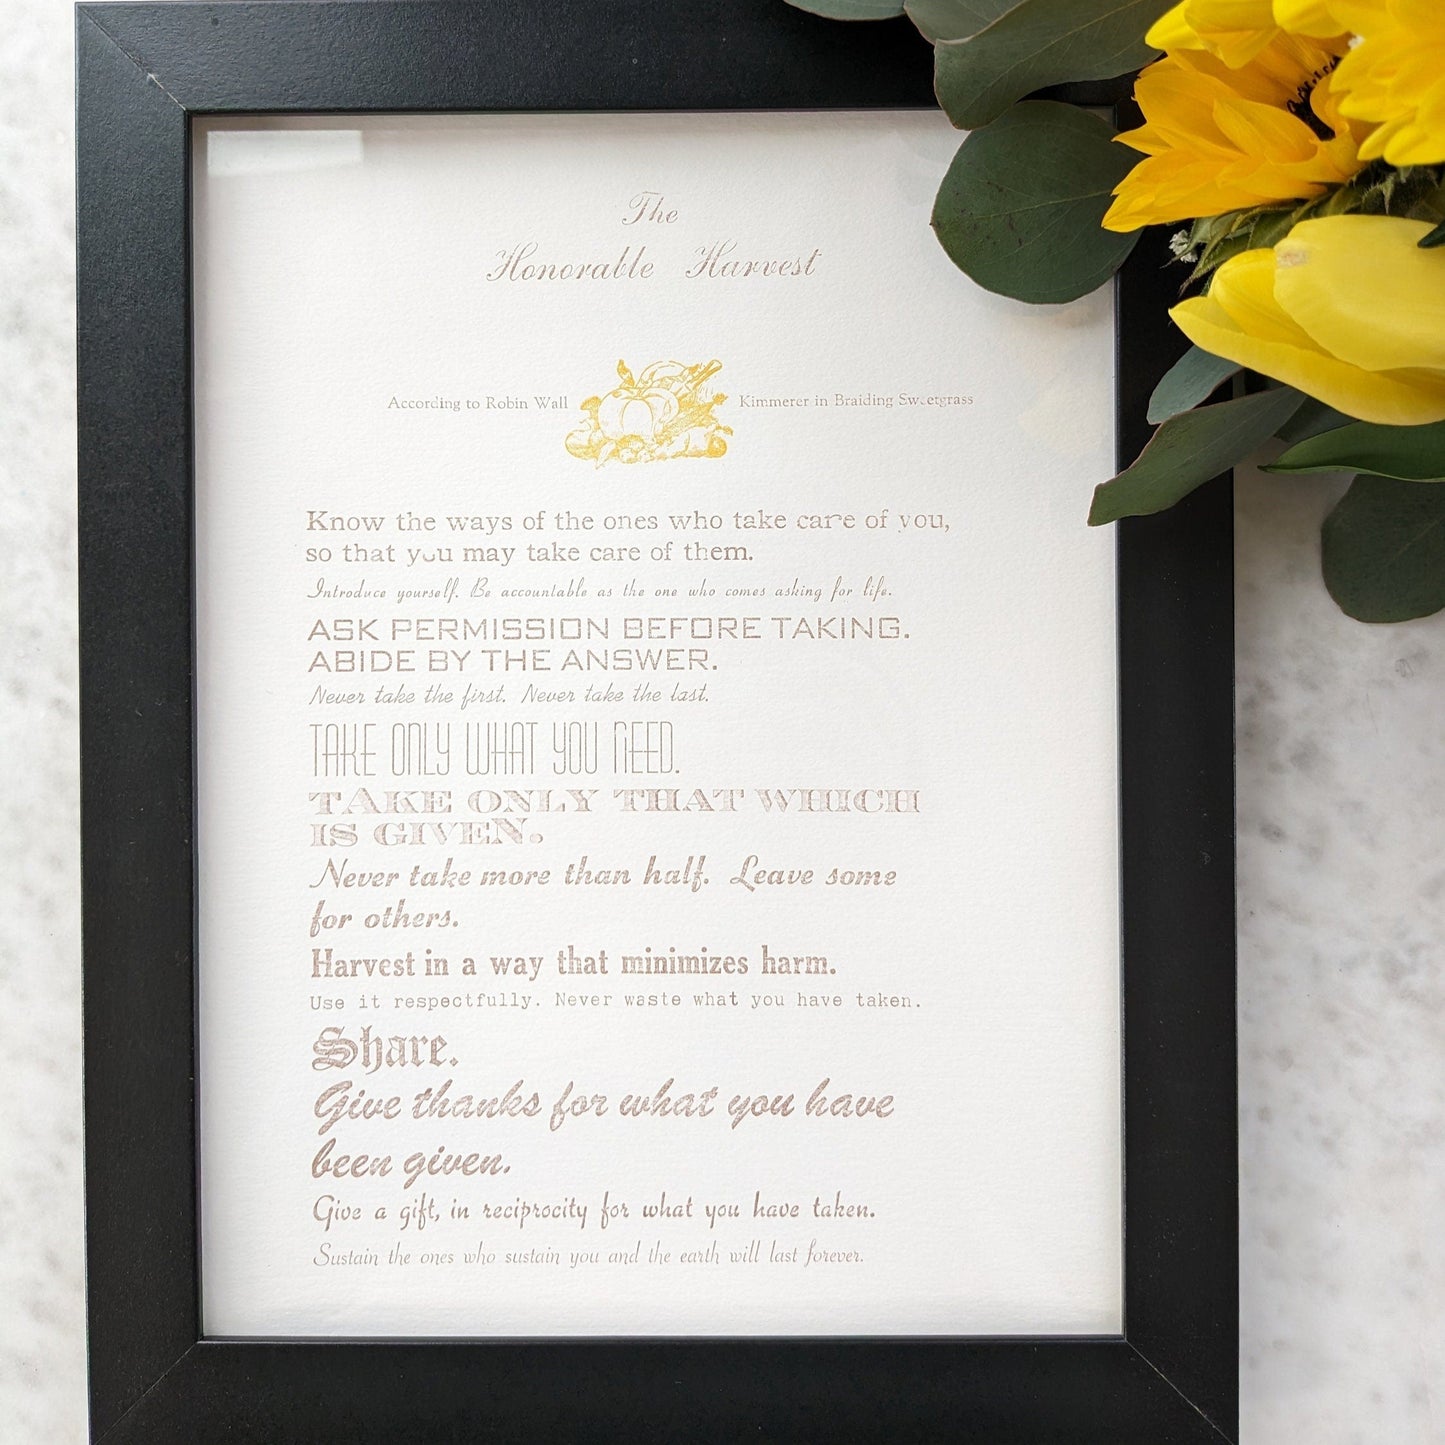 The
Honorable Harvest
According to Robin Wall Kimmerer in Braiding Sweetgrass
Know the ways of the ones who take care of you,
so that you may take care of them.
Introduce yourself. Be accountable as the one who comes asking for life.
ASK PERMISSION BEFORE TAKING.
ABIDE BY THE ANSWER.
Never take the first. Never take the last.
TAKE ONLY WHAT YOU NEED.
TAKE ONLY THAT WHICH
IS GIVEN.
Never take more than half. Leave some
for others.
Harvest in a way that minimizes harm.
Use it respectfully. Never waste what you have taken.
Share.
Give thanks for what you have
been given.
Give a gift, in reciprocity for what you have taken.
Sustain the ones who sustain you and the earth will last forever.